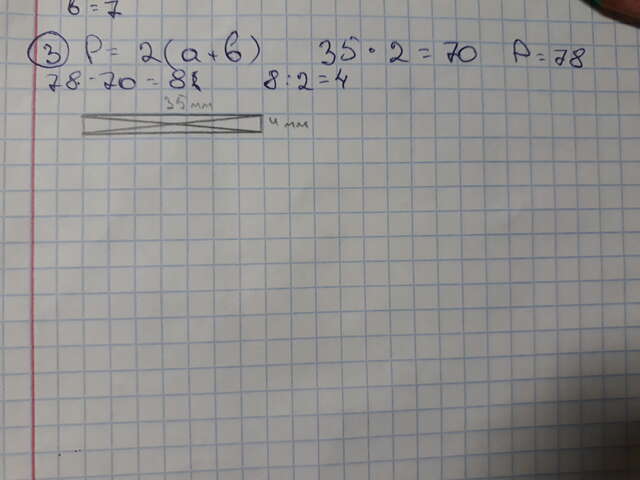 в = 7
③ P = 2(a+в) 35·2=70 P=78
78-70=8 8:2=4
35 мм
4 мм